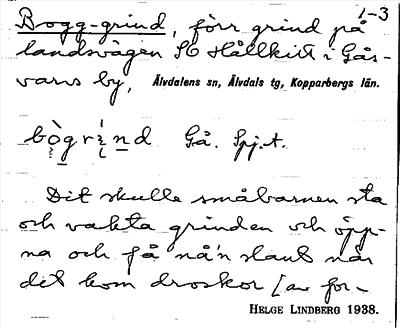 1-3
Bogg-grind, förr grind på
landsvägen SO Hållkitt i Gås-
varvs by, Älvdalens sn, Älvdals tg, Kopparbergs län.
bògrìnd Gå. Spj.t.
Dit skulle småbarnen sta
och vakta grinden och öpp-
na och få nå'n slant når
det kom droskor [av for-
HELGE LINDBERG 1938.